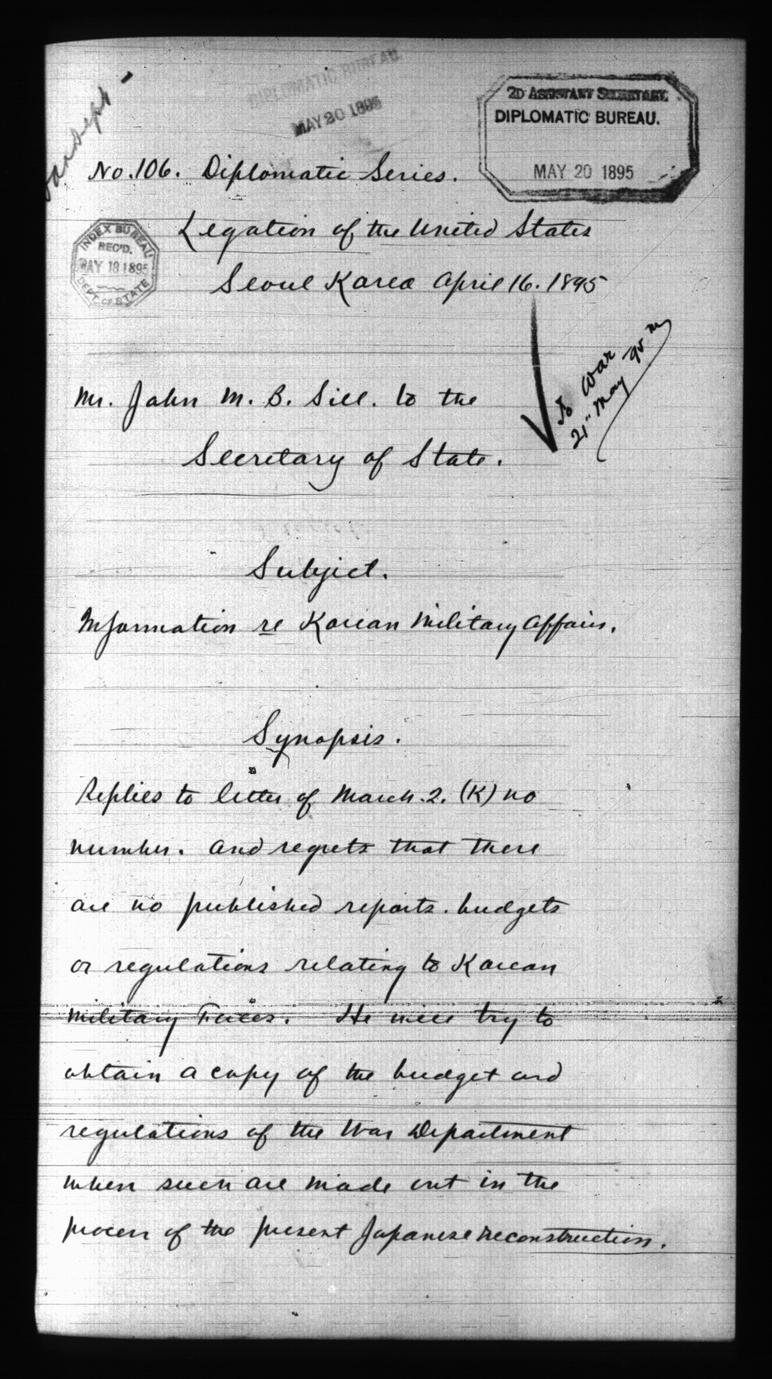 DIPLOMATIC BUREAU
MAY 20 1895
2D ASSISTANT SECRETARY.
DIPLOMATIC BUREAU.
MAY 20 1895
No. 106. Diplomatic Series.
INDEX BUREAU
REC'D.
MAY 18 1895
DEPT. OF STATE
Legation of the United States
Seoul Korea April 16. 1895
To War
21" May 95
Mr. John M. B. Sill. to the
Secretary of State.
Subject.
Information re Korean Military Affairs.
Synopsis.
Replies to letter of March. 2. (K) no
number. and regrets that there
are no published reports. budgets
or regulations relating to Korean
Military Forces. He will try to
obtain a copy of the budget and
regulations of the War Department
when such are made out in the
process of the present Japanese reconstruction.